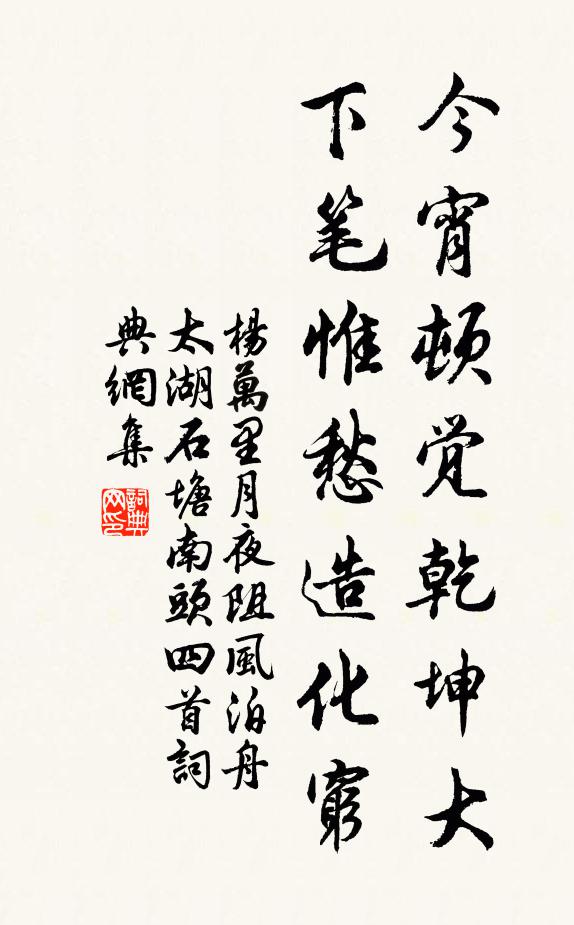 今宵顿觉乾坤大
下笔惟愁造化窮
楊萬里月夜阻風泊舟
太湖石塘南頭四首詞
典網集
詞典
网印